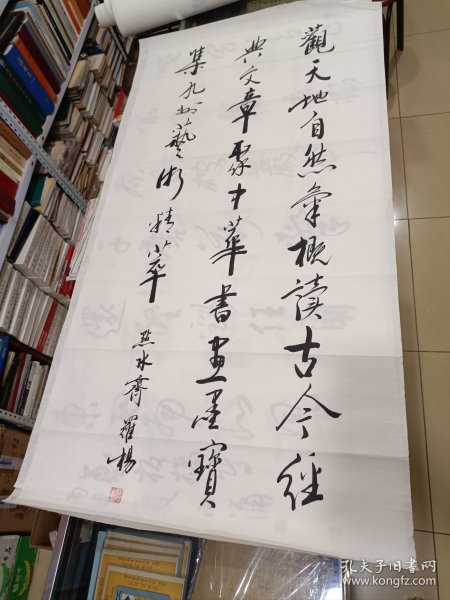 觀天地自然氣概讀古今經
典文章聚中華書畫墨寶
集九州藝術精萃
點水齋 羅楊
孔夫子旧书网
www.kongfz.com